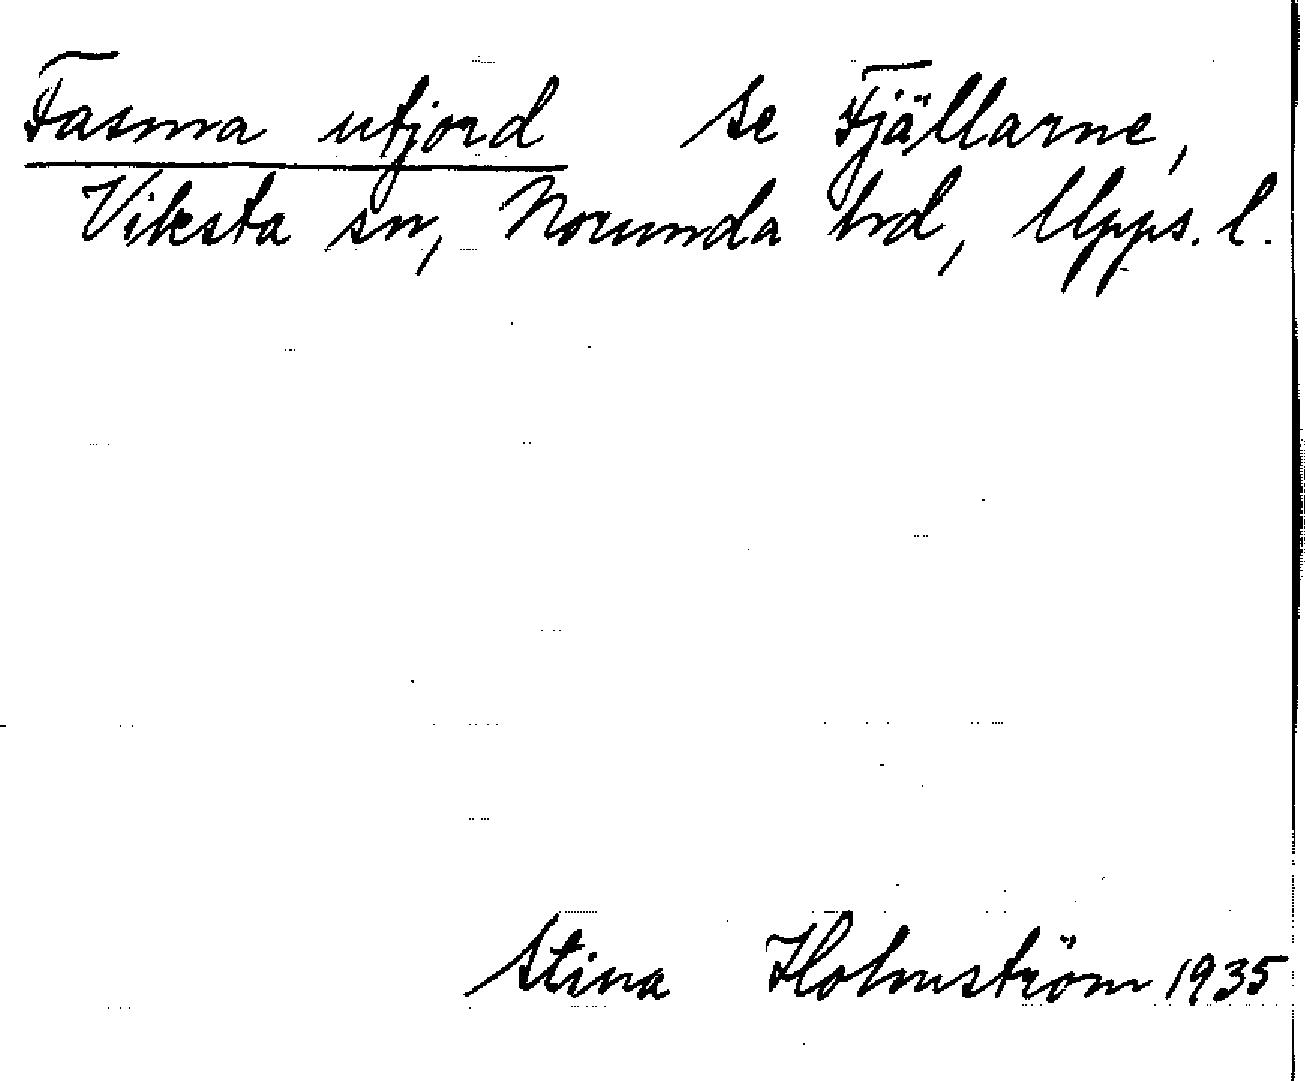 Fasma ufjord se Fjällarne,
Viksta sn, Norunda hd, Upps. l.
Stina Holmström 1935